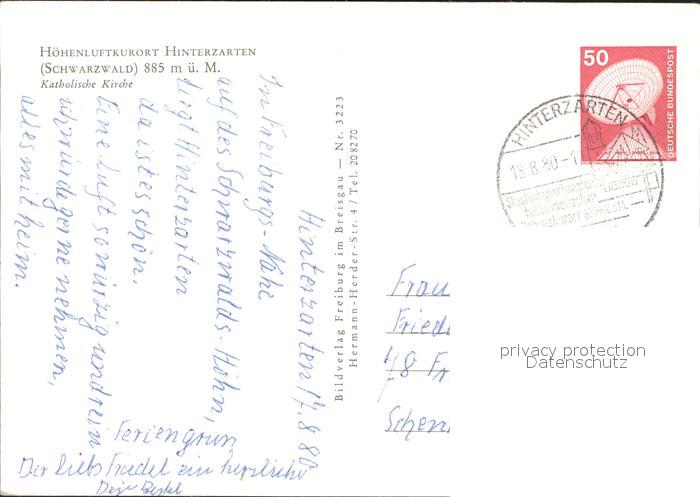 HÖHENLUFTKURORT HINTERZARTEN
(SCHWARZWALD) 885 m ü. M.
Katholische Kirche
50
DEUTSCHE BUNDESPOST
HINTERZARTEN
18.8.80-1
Bildverlag Freiburg im Breisgau — Nr. 3223
Hermann-Herder-Str. 4 / Tel. 208270
Hinterzarten 17.8.80
In Freiburgs-Nähe
auf des Schwarzwalds-Höhn,
liegt Hinterzarten
da ist es schön.
Eine Luft so würzig und rein
ich würde gerne nehmen,
alles mit heim.
Der liebs Friedel ein herzliche
Feriengrun
Frau
Fried
78 Fr
Schen
privacy protection
Datenschutz